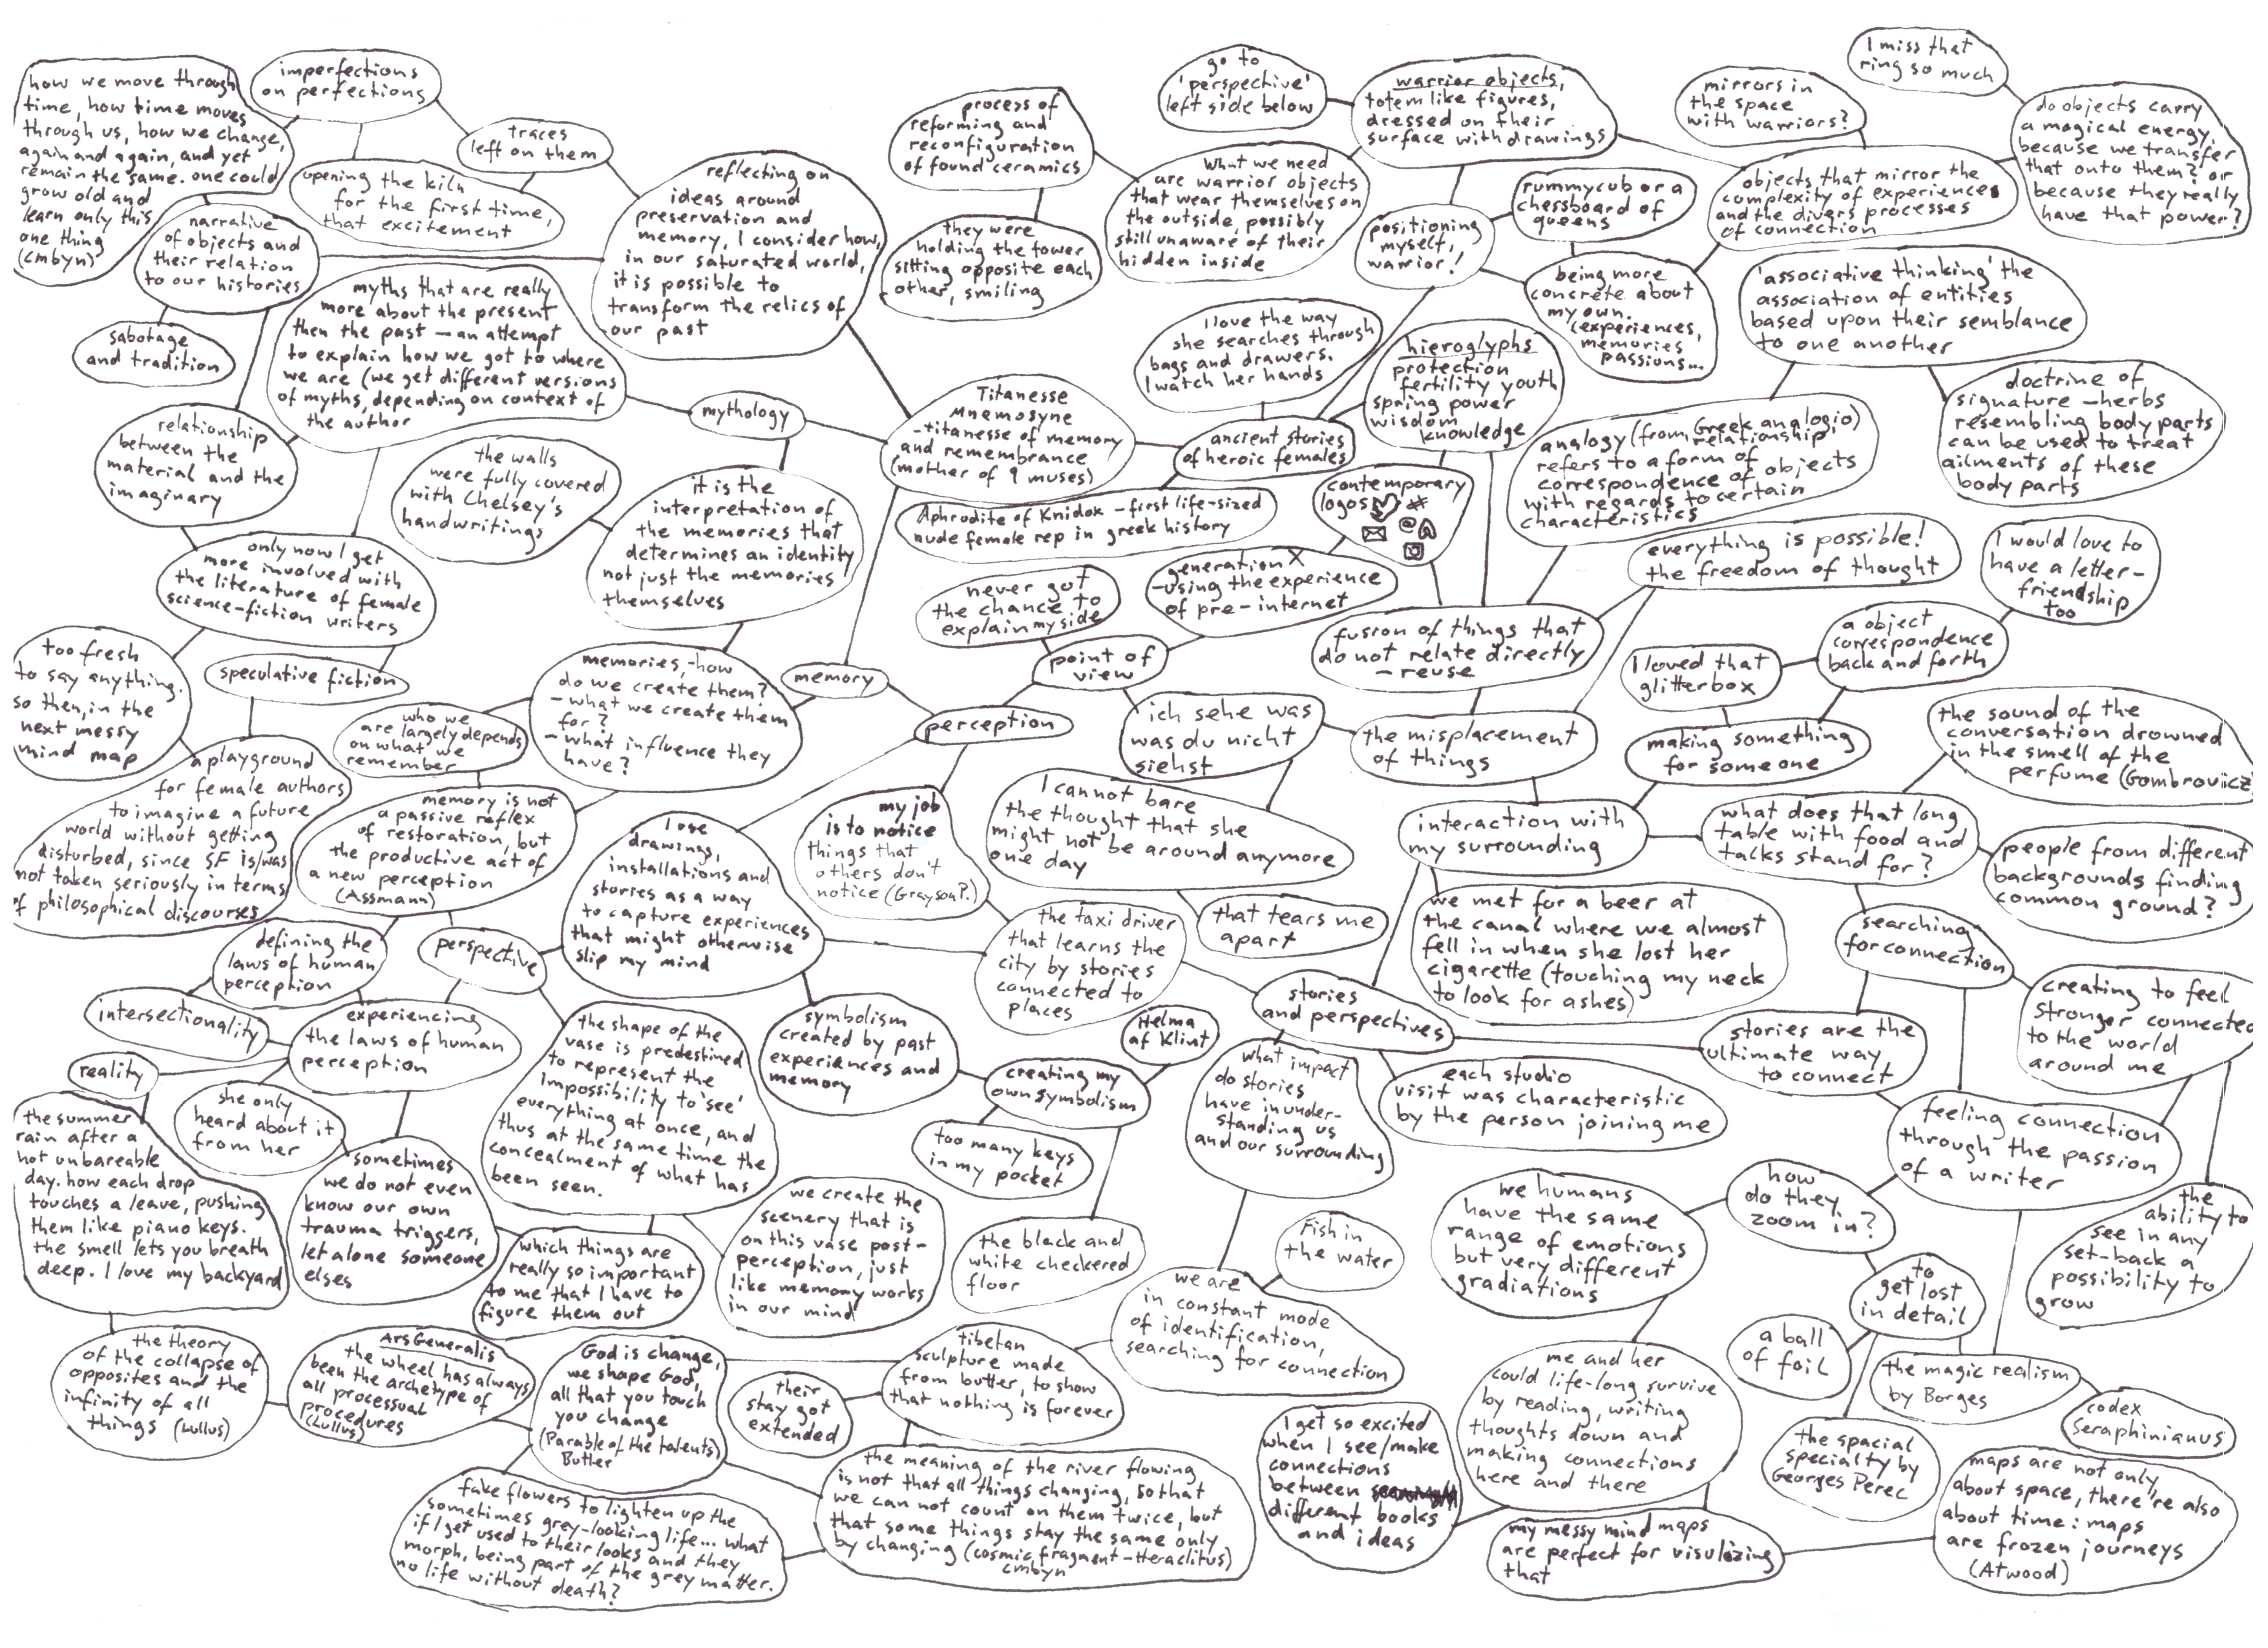 how we move through
time, how time moves
through us, how we change,
again and again, and yet
remain the same. one could
grow old and
learn only this
one thing
(cmbyn)
imperfections
on perfections
traces
left on them
opening the kiln
for the first time,
that excitement
narrative
of objects and
their relation
to our histories
sabotage
and tradition
reflecting on
ideas around
preservation and
memory, I consider how,
in our saturated world,
it is possible to
transform the relics of
our past
process of
reforming and
reconfiguration
of found ceramics
they were
holding the tower
sitting opposite each
other, smiling
go to
'perspective'
left side below
warrior objects,
totem like figures,
dressed on their
surface with drawings
What we need
are warrior objects
that wear themselves on
the outside, possibly
still unaware of their
hidden inside
positioning
myself,
warrior!
rummycub or a
chessboard of
queens
mirrors in
the space
with warriors?
I miss that
ring so much
do objects carry
a magical energy,
because we transfer
that onto them? or
because they really
have that power?
objects that mirror the
complexity of experiences
and the divers processes
of connection
being more
concrete about
my own.
(experiences,
memories
passions...
'associative thinking' the
association of entities
based upon their semblance
to one another
doctrine of
signature – herbs
resembling body parts
can be used to treat
ailments of these
body parts
analogy (from Greek analogio)
relationship
refers to a form of
correspondence of objects
with regards to certain
characteristics
myths that are really
more about the present
then the past – an attempt
to explain how we got to where
we are (we get different versions
of myths, depending on context of
the author
mythology
Titanesse
Mnemosyne
-titanesse of memory
and remembrance
(mother of 9 muses)
I love the way
she searches through
bags and drawers.
I watch her hands
ancient stories
of heroic females
hieroglyphs
protection
fertility youth
spring power
wisdom
knowledge
contemporary
logos # @
Aphrodite of Knidox – first life-sized
nude female rep in greek history
generation X
-using the experience
of pre-internet
never got
the chance to
explain my side
point of
view
relationship
between the
material and the
imaginary
the walls
were fully covered
with Chelsey's
handwritings
it is the
interpretation of
the memories that
determines an identity
not just the memories
themselves
only now I get
more involved with
the literature of female
science-fiction writers
too fresh
to say anything.
so then, in the
next messy
mind map
speculative fiction
a playground
for female authors
to imagine a future
world without getting
disturbed, since SF is/was
not taken seriously in terms
of philosophical discourses
who we
are largely depends
on what we
remember
memories,-how
do we create them?
-what we create them
for?
-what influence they
have?
memory
perception
fusion of things that
do not relate directly
– reuse
everything is possible!
the freedom of thought
I would love to
have a letter-
friendship
too
a object
correspondence
back and forth
I loved that
glitterbox
making something
for someone
ich sehe was
was du nicht
siehst
the misplacement
of things
memory is not
a passive reflex
of restoration, but
the productive act of
a new perception
(Assmann)
I use
drawings,
installations and
stories as a way
to capture experiences
that might otherwise
slip my mind
my job
is to notice
things that
others don't
notice (Grayson P.)
I cannot bare
the thought that she
might not be around anymore
one day
that tears me
apart
the taxi driver
that learns the
city by stories
connected to
places
interaction with
my surrounding
what does that long
table with food and
talks stand for?
the sound of the
conversation drowned
in the smell of the
perfume (Gombrovicz
people from different
backgrounds finding
common ground?
we met for a beer at
the canal where we almost
fell in when she lost her
cigarette (touching my neck
to look for ashes)
searching
for connection
creating to feel
stronger connected
to the world
around me
stories
and perspectives
stories are the
ultimate way
to connect
each studio
visit was characteristic
by the person joining me
what impact
do stories
have in under-
standing us
and our surrounding
feeling connection
through the passion
of a writer
the
ability to
see in any
set-back a
possibility to
grow
defining the
laws of human
perception
perspective
intersectionality
experiencing
the laws of human
perception
reality
she only
heard about it
from her
the summer
rain after a
hot unbareable
day. how each drop
touches a leave, pushing
them like piano keys.
the smell lets you breath
deep. I love my backyard
sometimes
we do not even
know our own
trauma triggers,
let alone someone
elses
the shape of the
vase is predestined
to represent the
impossibility to 'see'
everything at once, and
thus at the same time the
concealment of what has
been seen.
symbolism
created by past
experiences and
memory
creating my
own symbolism
Helma
af Klint
too many keys
in my pocket
the black and
white checkered
floor
we create the
scenery that is
on this vase post-
perception, just
like memory works
in our mind
which things are
really so important
to me that I have to
figure them out
Fish in
the water
we are
in constant mode
of identification,
searching for connection
we humans
have the same
range of emotions
but very different
gradiations
how
do they
zoom in?
to
get lost
in detail
a ball
of foil
the magic realism
by Borges
codex
Seraphinianus
the spacial
specialty by
Georges Perec
maps are not only
about space, there're also
about time: maps
are frozen journeys
(Atwood)
me and her
could life-long survive
by reading, writing
thoughts down and
making connections
here and there
my messy mind maps
are perfect for visulizing
that
I get so excited
when I see/make
connections
between
different books
and ideas
tibetan
sculpture made
from butter, to show
that nothing is forever
their
stay got
extended
God is change,
we shape God,
all that you touch
you change
(Parable of the talents)
Butler
Ars Generalis
the wheel has always
been the archetype of
all processual
procedures
(Lullus)
the theory
of the collapse of
opposites and the
infinity of all
things (Lullus)
fake flowers to lighten up the
sometimes grey-looking life... what
if I get used to their looks and they
morph, being part of the grey matter.
no life without death?
the meaning of the river flowing
is not that all things changing, so that
we can not count on them twice, but
that some things stay the same only
by changing (cosmic fragment – Heraclitus)
cmbyn